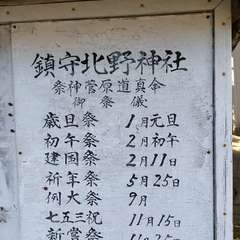 鎮守北野神社
祭神菅原道真命
御祭儀
歳旦祭 1月元旦
初午祭 2月初午
建国祭 2月11日
祈年祭 5月25日
例大祭 9月
七五三祝 11月15日
新嘗祭